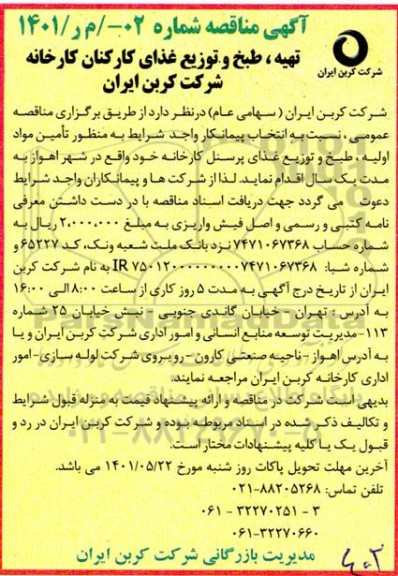 آگهی مناقصه شماره ۰۲-/م ر/۱۴۰۱
تهیه ، طبخ و توزیع غذای کارکنان کارخانه
شرکت کربن ایران
شرکت کربن ایران
شرکت کربن ایران ( سهامی عام) درنظر دارد از طریق برگزاری مناقصه
عمومی ، نسبت به انتخاب پیمانکار واجد شرایط به منظور تأمین مواد
اولیه ، طبخ و توزیع غذای پرسنل کارخانه خود واقع در شهر اهواز به
مدت یک سال اقدام نماید. لذا از شرکت ها و پیمانکاران واجد شرایط
دعوت می گردد جهت دریافت اسناد مناقصه با در دست داشتن معرفی
نامه کتبی و رسمی و اصل فیش واریزی به مبلغ ۲,۰۰۰,۰۰۰ ریال به
شماره حساب ۷۴۷۱۰۶۷۳۶۸ نزد بانک ملت شعبه ونک، کد ۶۵۲۲۷ و
شماره شبا: IR ۷۵۰۱۲۰۰۰۰۰۰۰۰۷۴۷۱۰۶۷۳۶۸ به نام شرکت کربن
ایران از تاریخ درج آگهی به مدت ۵ روز کاری از ساعت ۸:۰۰ الی ۱۶:۰۰
به آدرس : تهران - خیابان گاندی جنوبی - نبش خیابان ۲۵ شماره
۱۱۳- مدیریت توسعه منابع انسانی و امور اداری شرکت کربن ایران و یا
به آدرس اهواز -ناحیه صنعتی کارون - روبروی شرکت لوله سازی- امور
اداری کارخانه کربن ایران مراجعه نمایند.
بدیهی است شرکت در مناقصه و ارائه پیشنهاد قیمت به منزله قبول شرایط
و تکالیف ذکر شده در اسناد مربوطه بوده و شرکت کربن ایران در رد و
قبول یک یا کلیه پیشنهادات مختار است.
آخرین مهلت تحویل پاکات روز شنبه مورخ ۱۴۰۱/۰۵/۲۲ می باشد.
تلفن تماس: ۸۸۲۰۵۲۶۸-۰۲۱
۳ - ۳۲۲۷۰۲۵۱ - ۰۶۱
۳۲۲۷۰۶۶۰-۰۶۱
مدیریت بازرگانی شرکت کربن ایران